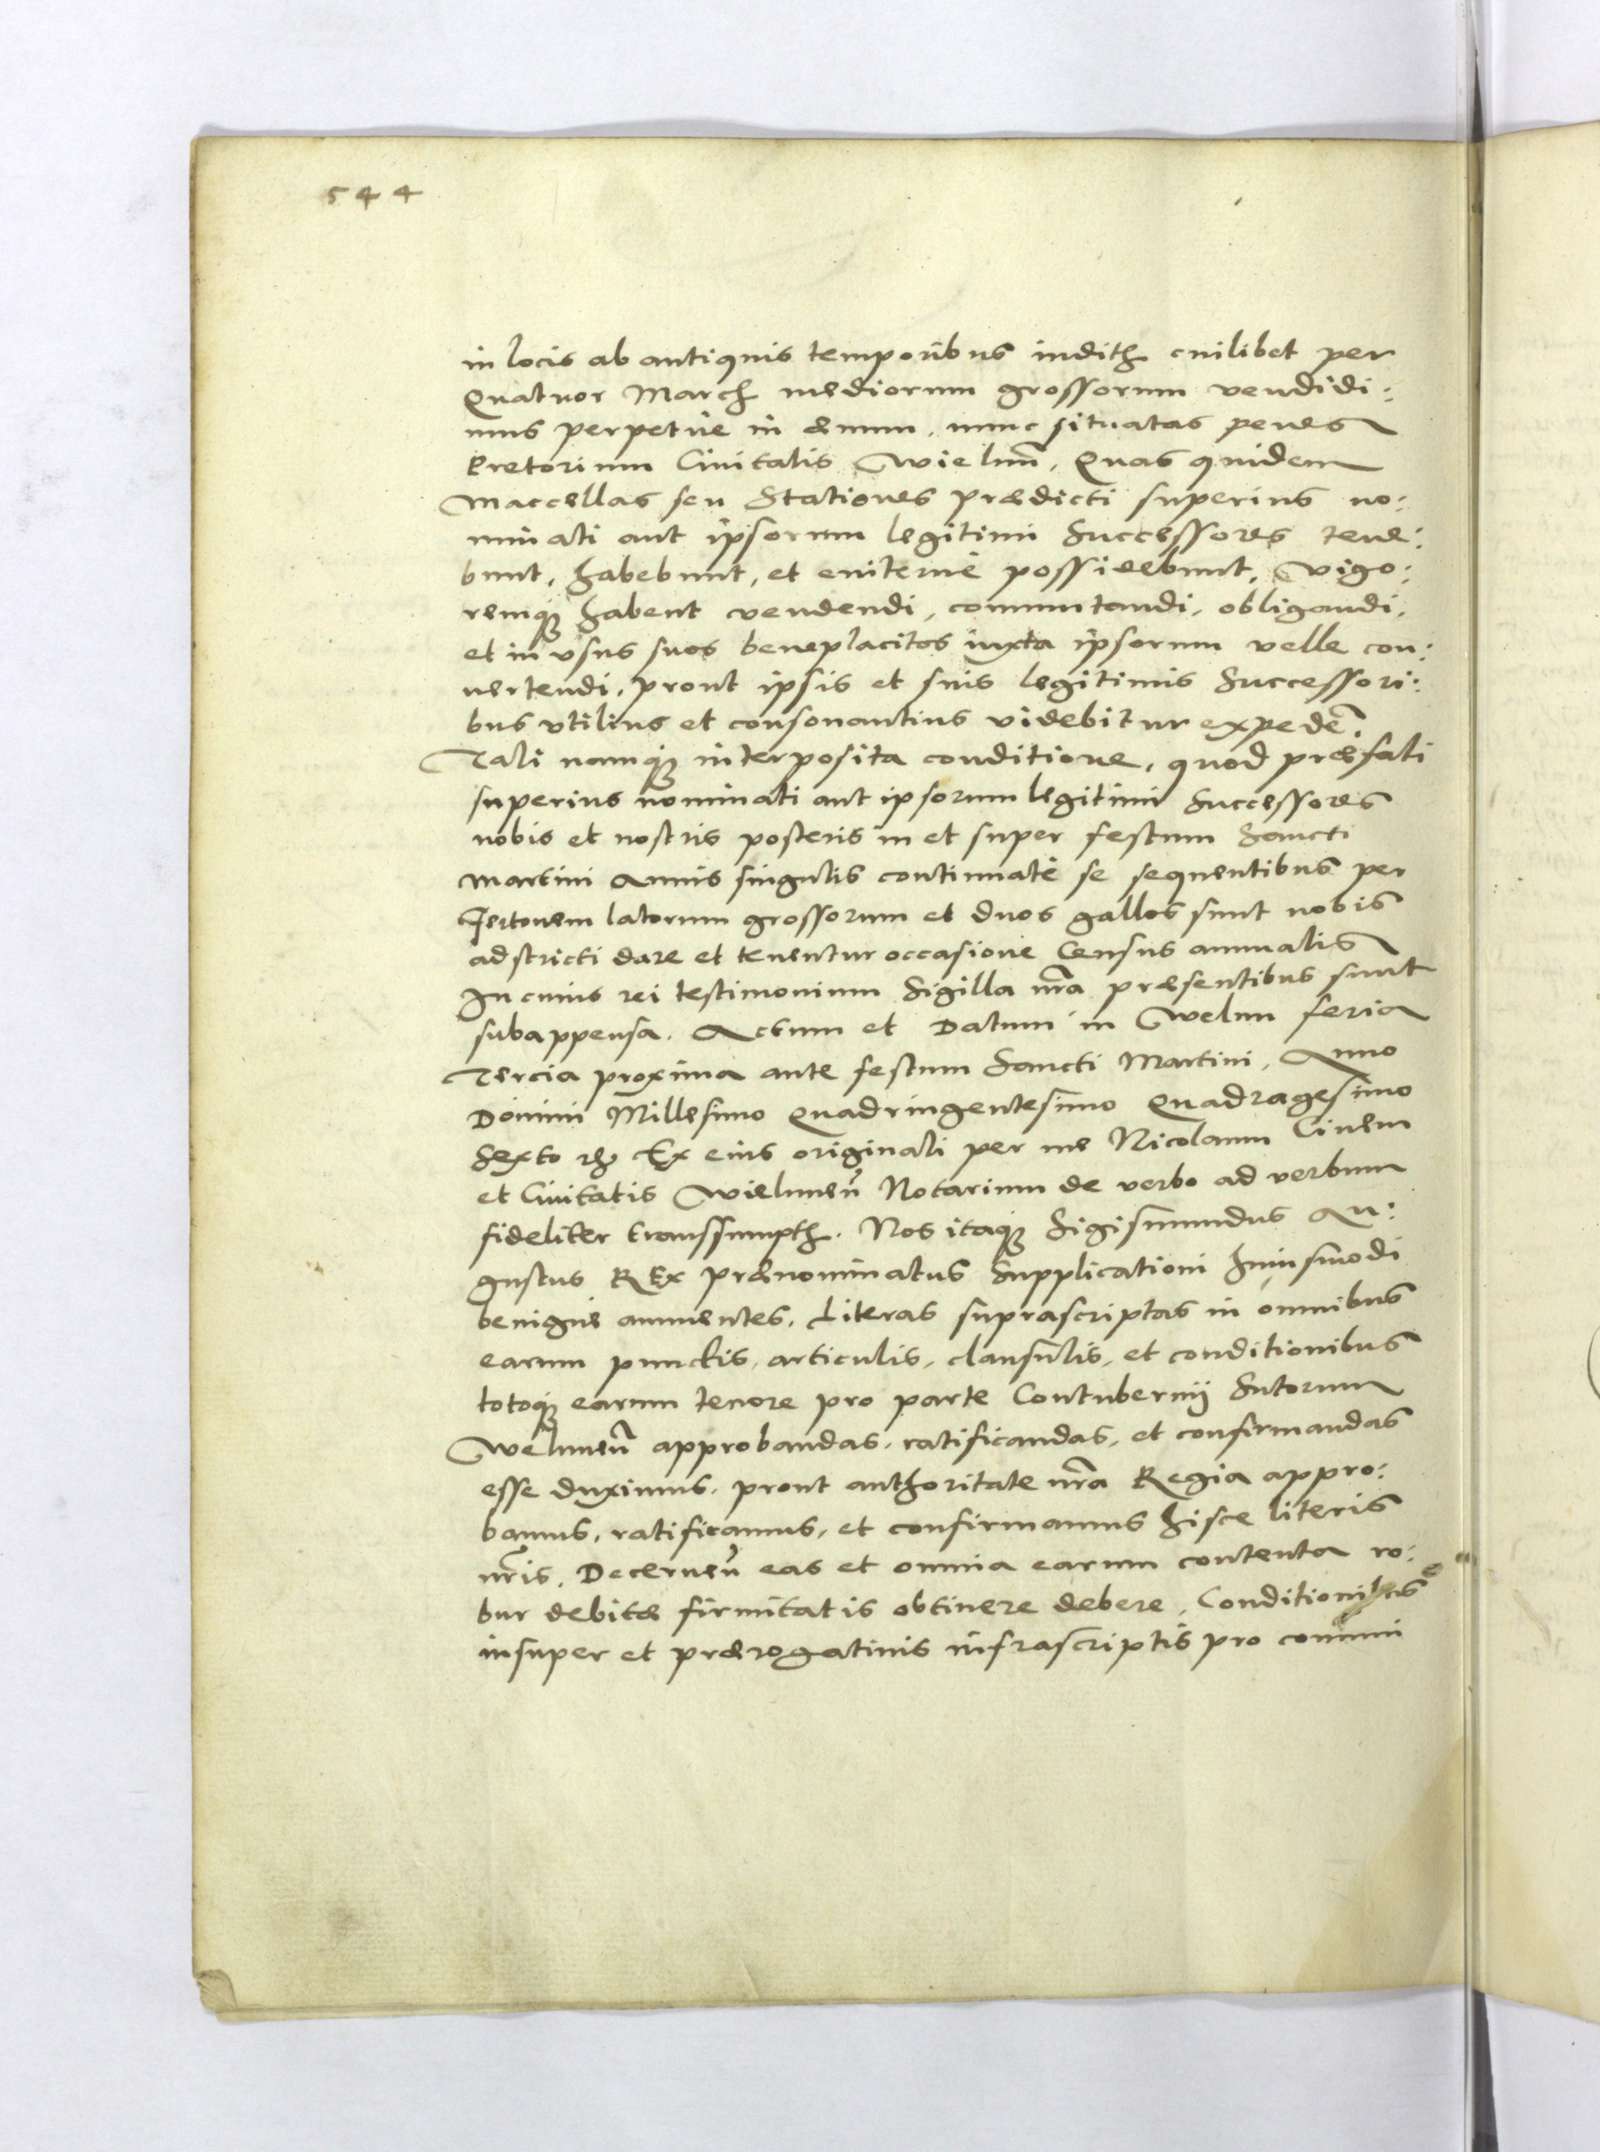 544
in locis ab antiquis temporibus indith cuilibet per
Quatuor March mediorum grossorum vendidi:
mus perpetue in æuum, nunc situatas penes
Pretorium Ciuitatis Wielunen, Quas quidem
Maccellas seu Stationes prædicti superius no:
minati aut ipsorum legitimi Successores tene:
bunt, habebunt, et euiterne possidebunt, Vigo:
remque habent vendendi, commutandi, obligandi,
et in vsus suos beneplacitos iuxta ipsorum velle con:
uertendi, prout ipsis et suis legitimis Successori:
bus vtilius et consonantius videbitur expeden.
Tali namque interposita conditione, quod præfati
superius nominati aut ipsorum legitimi Successores
nobis et nostris posteris in et super festum Sancti
Martini Annis singulis continuatè se sequentibus per
Fertonem latorum grossorum et duos gallos sunt nobis
adstricti dare et tenentur occasione Census annualis
In cuius rei testimonium Sigilla nra præsentibus sunt
subappensa. Actum et Datum in Welun feria
Tercia proxima ante festum Sancti Martini, Anno
Domini Millesimo Quadringentesimo Quadragesimo
Sexto etc Ex eius originali per me Nicolaum Ciuem
et Ciuitatis Wielunen Notarium de verbo ad verbum
fideliter transsumpth. Nos itaque Sigismundus Au:
gustus REx prænominatus Supplicationi huiusmodi
benigne annuentes, Literas suprascriptas in omnibus
earum punctis, articulis, clausulis, et conditionibus
totoque earum tenore pro parte Contubernij Sutorum
Welunen approbandas, ratificandas, et confirmandas
esse duximus, prout authoritate nra Regia appro:
bamus, ratificamus, et confirmamus hisce literis
nris. Decernen eas et omnia earum contenta ro:
bur debitæ firmitatis obtinere debere, Conditionibus
insuper et prærogatiuis infrascriptis pro communi